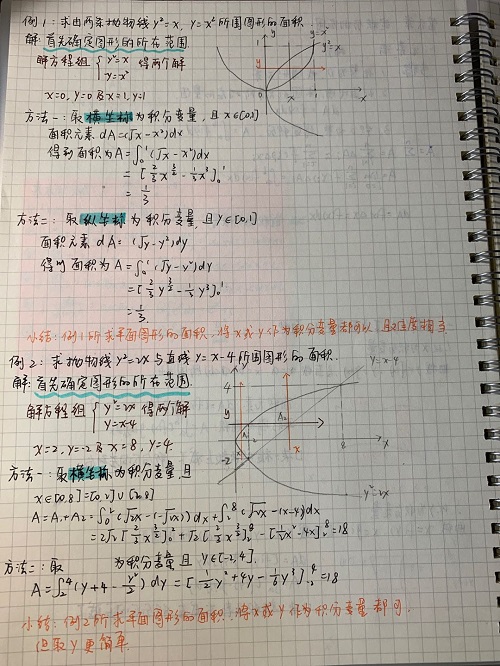 例1：求由两条抛物线 y²=x, y=x² 所围图形的面积.
解：首先确定图形的所在范围
解方程组 { y²=x 得两个解
y=x²
x=0, y=0 及 x=1, y=1
方法一：取横坐标为积分变量，且 x∈[0,1]
面积元素 dA=(√x-x²)dx
得到面积为 A=∫₀¹(√x-x²)dx
=[2/3 x^(3/2) - 1/3 x³]₀¹
=1/3
方法二：取纵坐标为积分变量，且 y∈[0,1]
面积元素 dA=(√y-y²)dy
得到面积为 A=∫₀¹(√y-y²)dy
=[2/3 y^(3/2) - 1/3 y³]₀¹
=1/3.
小结：例1所求平面图形的面积，将x或y作为积分变量都可以，且难度相当
例2：求抛物线 y²=2x 与直线 y=x-4 所围图形的面积.
解：首先确定图形的所在范围.
解方程组 { y²=2x 得两个解
y=x-4
x=2, y=-2 及 x=8, y=4.
方法一：取横坐标为积分变量，且
x∈[0,8]=[0,2]∪[2,8]
A=A₁+A₂=∫₀²(√2x-(-√2x))dx+∫₂⁸(√2x-(x-4))dx
=2√2[2/3 x^(3/2)]₀²+√2[2/3 x^(3/2)]₂⁸-[1/2 x²-4x]₂⁸=18
方法二：取 为积分变量且 y∈[-2,4].
A=∫₋₂⁴(y+4-y²/2)dy=[1/2 y²+4y-1/6 y³]₋₂⁴=18
小结：例2所求平面图形的面积，将x或y作为积分变量都可.
但取y更简单.
y=x²
y²=x
1
y
0
x
1
x
y=x-4
4
y
A₁
A₂
2
x
8
x
-2
y²=2x